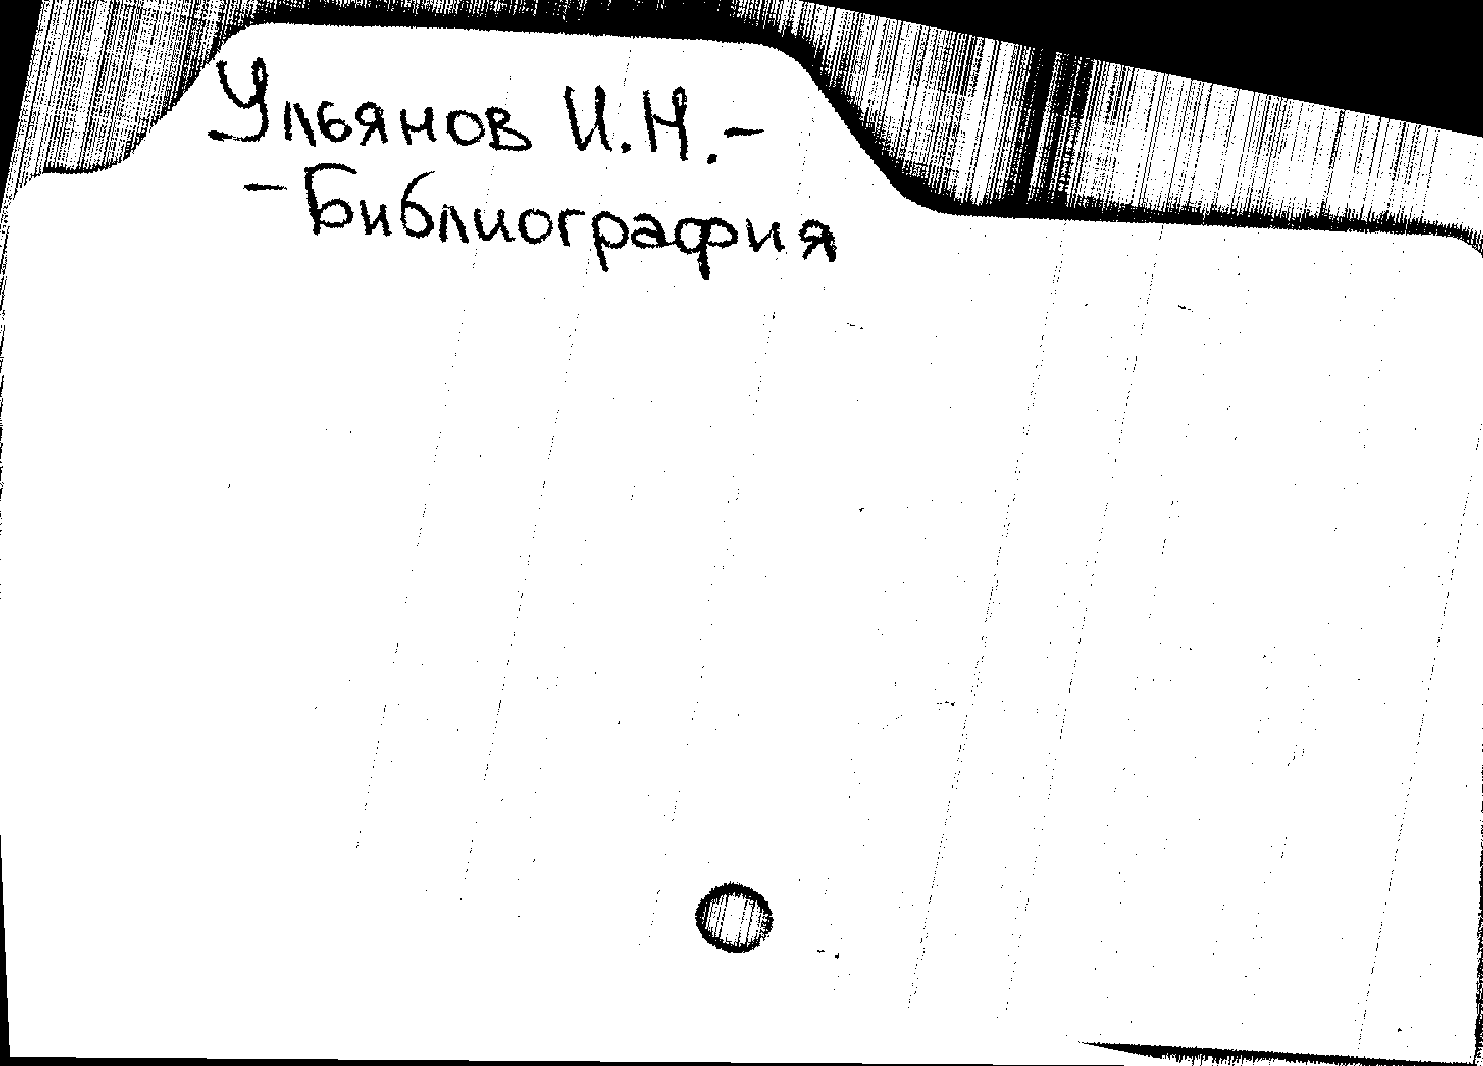 Ульянов И.Н.-
-Библиография